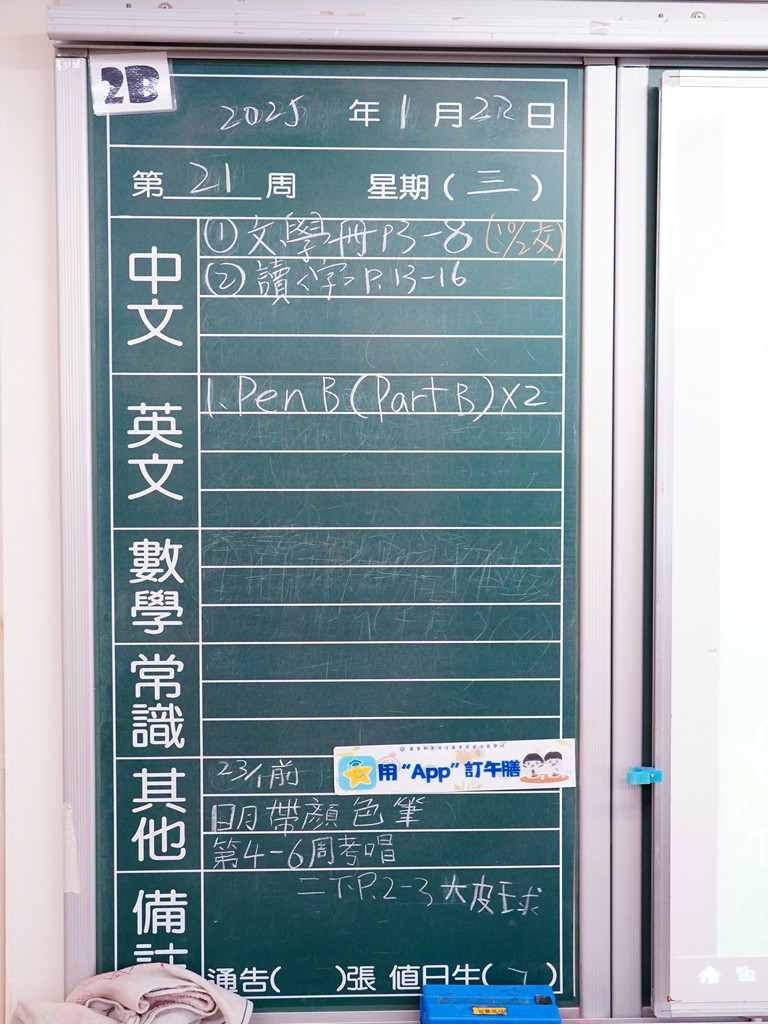 2B
2025 年 1 月 22 日
第 21 周 星期 ( 三 )
中文
① 文學冊 P3-8 (10/2交)
② 讀<字> P.13-16
英文
1. Pen B (Part B) x2
數學
常識
其他
23/1前
用“App”訂午膳
明帶顏色筆
第4-6周考唱
備註
二下P.2-3 大皮球
通告( )張 值日生( )